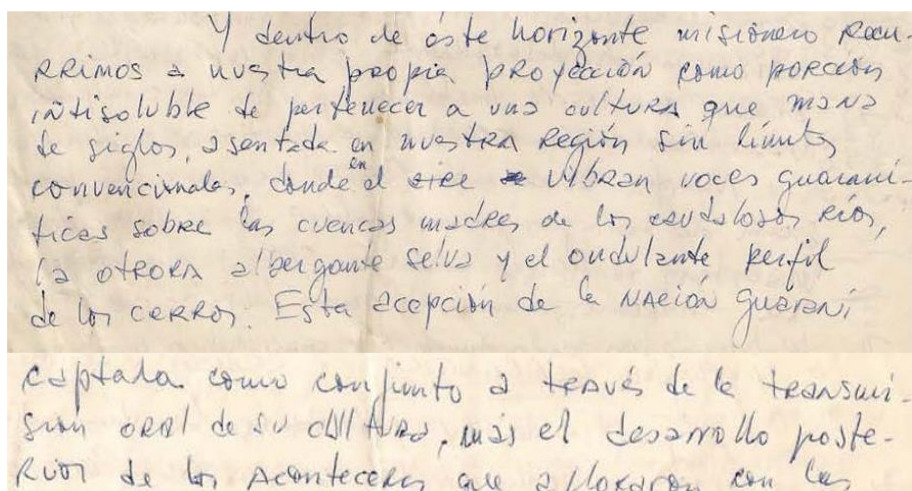 Y dentro de éste horizonte misionero recu-
rrimos a nuestra propia proyección como porción
indisoluble de pertenecer a una cultura que mana
de siglos, asentada en nuestra región sin límites
convencionales, donde en el aire vibran voces guaraní-
ticas sobre las cuencas madre de los caudalosos ríos,
la otrora albergante selva y el ondulante perfil
de los cerros. Esta acepción de la Nación guaraní
captada como conjunto a través de la transmi-
sión oral de su cultura, más el desarrollo poste-
rior de los aconteceres que afloraron con las